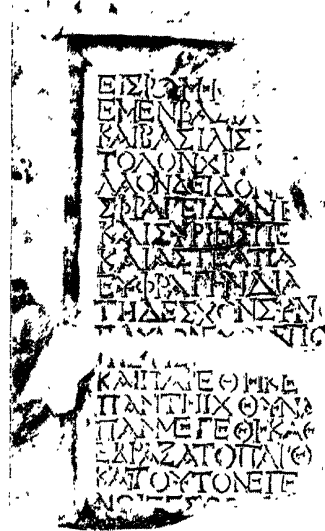 ΕΙΣΡΩΜΗ
ΕΜΕΝΒΑ
ΚΑΙΒΑΣΙΛΙΣ
ΤΟΛΟΝΧΡ
ΛΑΟΝΔΕΙΔΟ
ΣΦΡΑΓΕΙΔΑΝ
ΚΑΙΣΥΡΙΗΣΠΕ
ΚΑΙΑΣΤΕΑΠΑ
ΕΥΦΡΑΤΗΝΔΙΑ
ΤΗΔΕΣΧΟΝΣΥΝΟ
ΚΑΙΠΑΙΕΘΗΚΕ
ΠΑΝΤΗΙΧΘΥΝΑ
ΠΑΝΜΕΓΕΘΗΚΑΘ
ΕΔΡΑΞΑΤΟΠΑΡΘ
ΚΑΙΤΟΥΤΟΝΕΠΕ